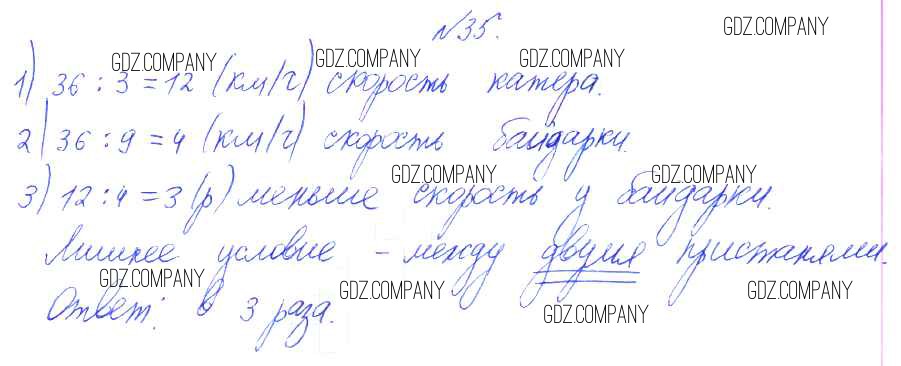 №35.
1) 36 : 3 = 12 (км/ч) скорость катера.
2) 36 : 9 = 4 (км/ч) скорость байдарки.
3) 12 : 4 = 3 (р) меньше скорость у байдарки.
Лишнее условие - между двумя пристанями.
Ответ: в 3 раза.
GDZ.COMPANY
GDZ.COMPANY
GDZ.COMPANY
GDZ.COMPANY
GDZ.COMPANY
GDZ.COMPANY
GDZ.COMPANY
GDZ.COMPANY
GDZ.COMPANY
GDZ.COMPANY